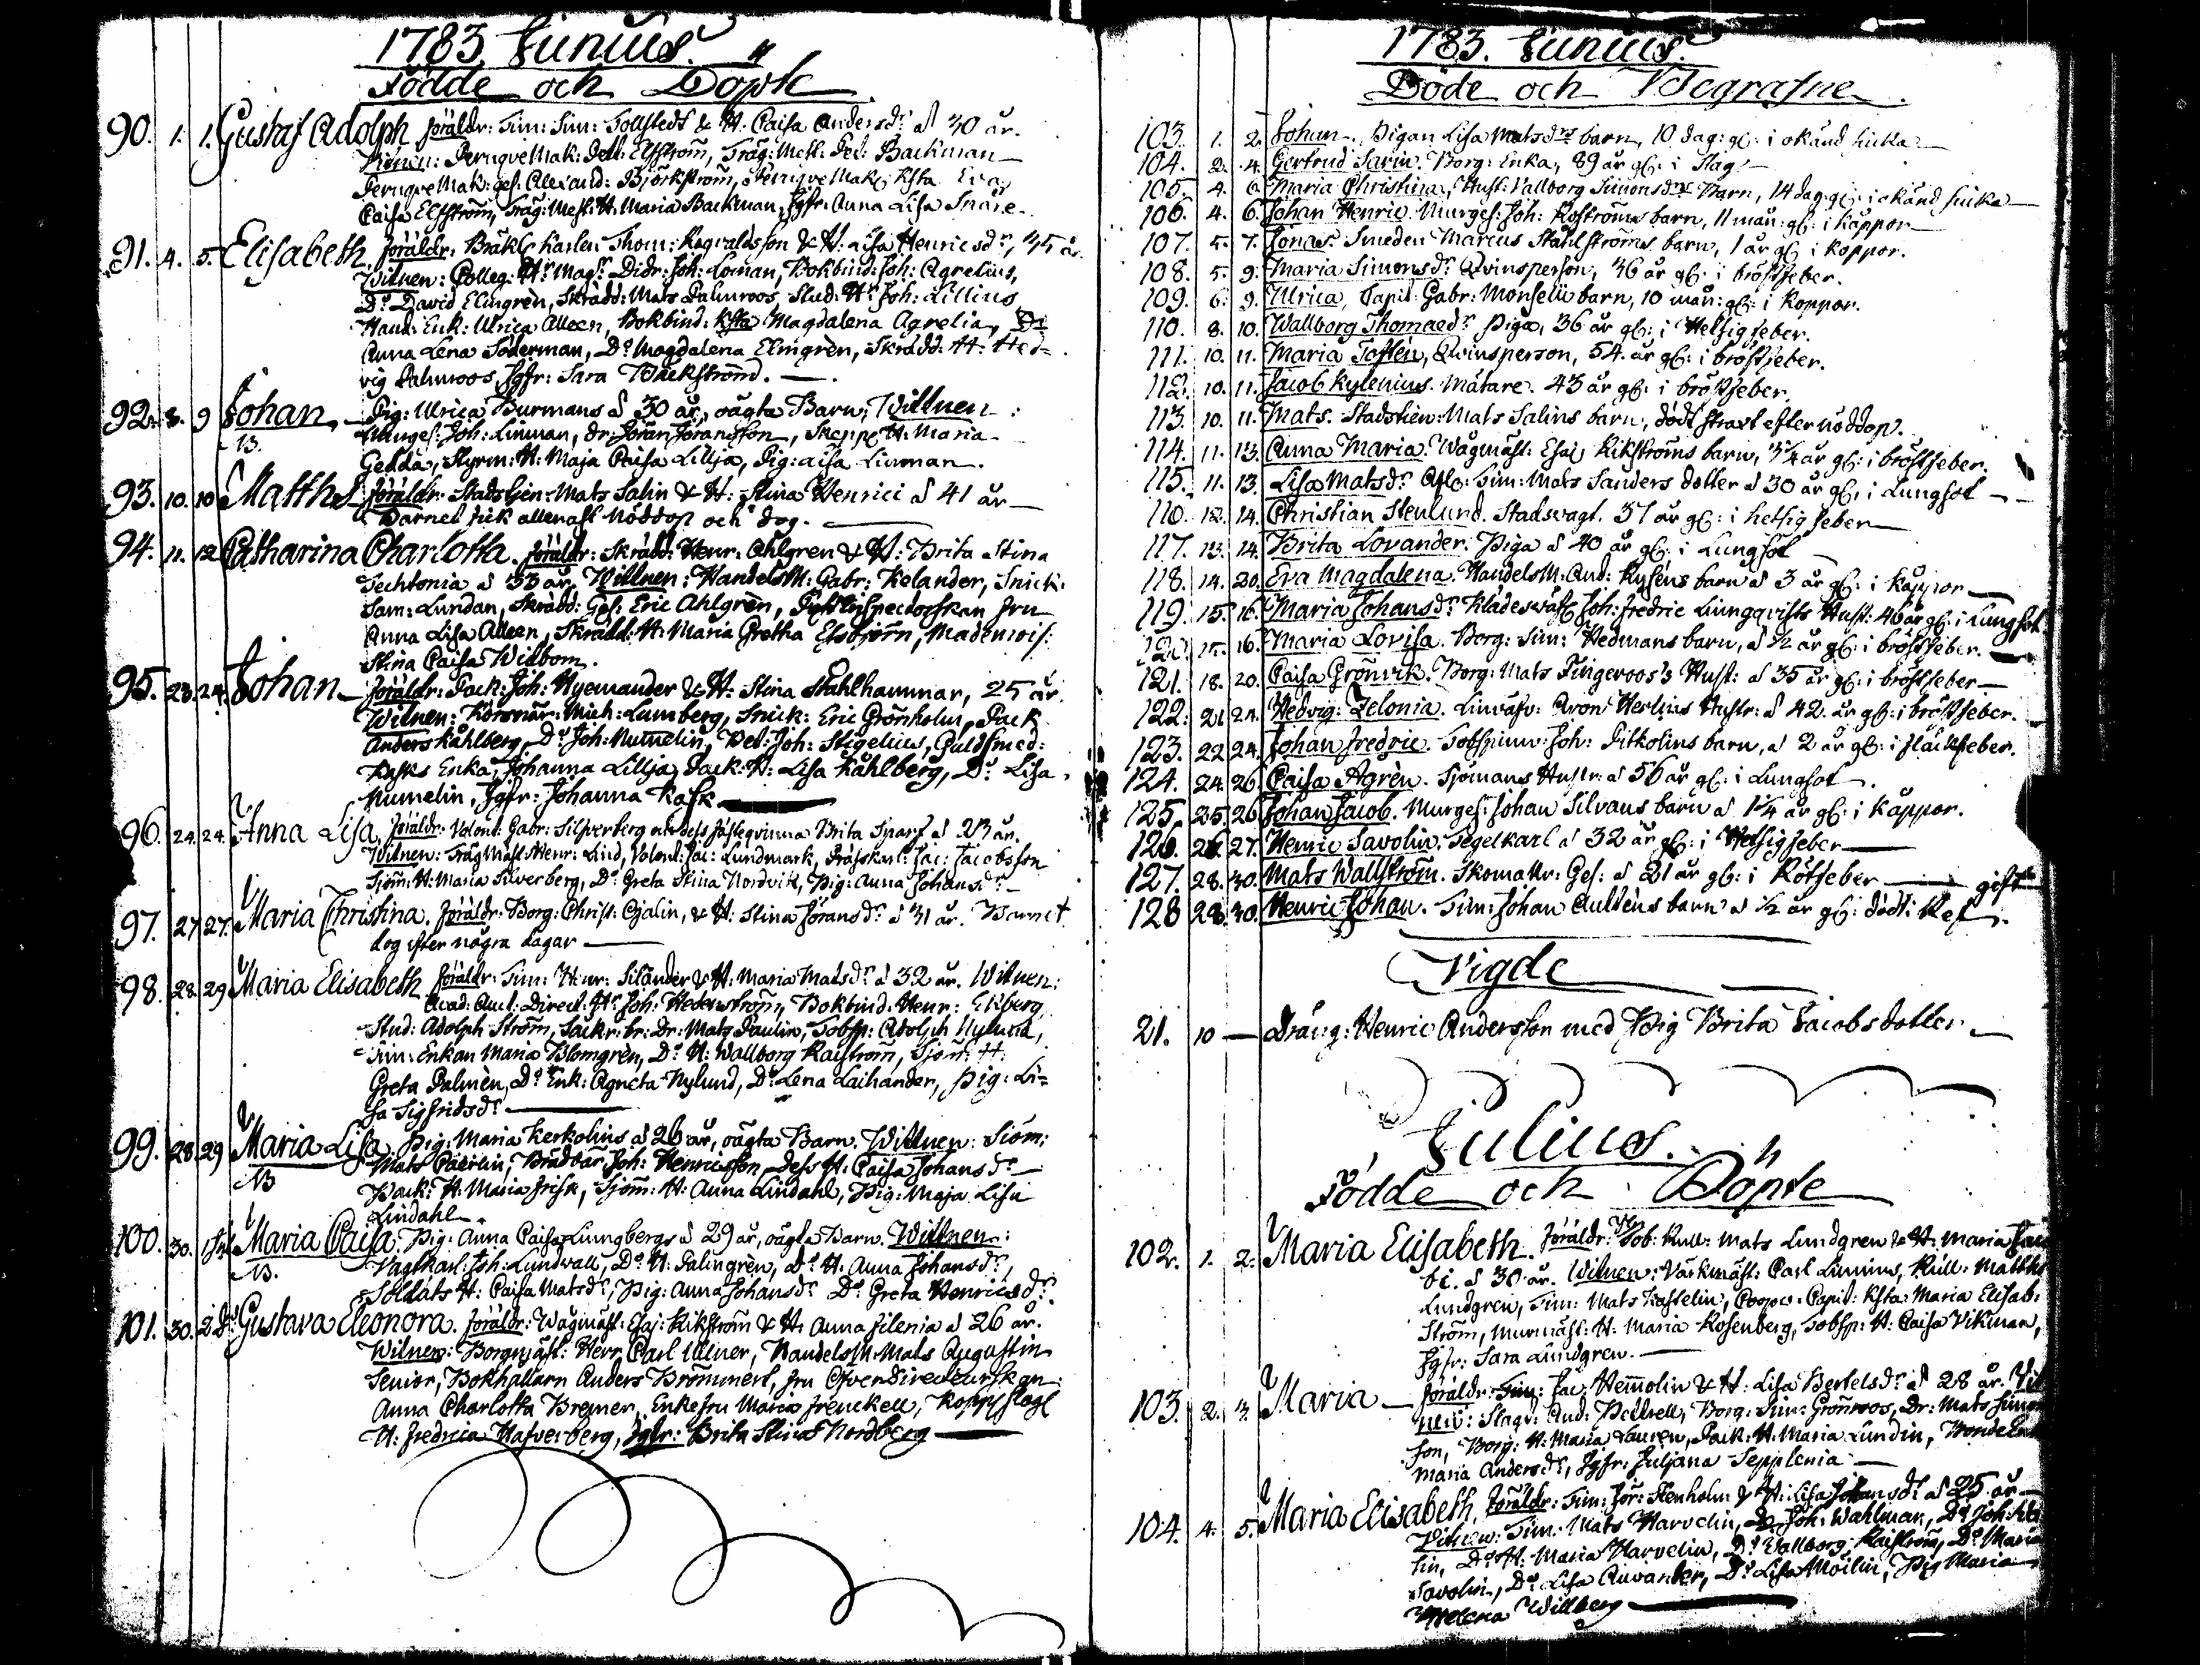 1783. Junius.
Födde och Döpte
90. 1. 1. Gustaf Adolph. föräldr: Tim: Sim: Tollstedt & H. Caisa Andersdr å 30 år.
Wittnen: PeruqveMak: Petr: Elfström, Träg: Mest: Pet: Backman
PeruqveMak: ges: Alexand: Björkström, PeruqveMak: hsta Eva
Caisa Elfström, Träg: Mest: H. Maria Backman, Jgfr: Anna Lisa Snäre.
91. 4. 5. Elisabeth. föräldr. Bräkl Karlen Thom: Regvaldsson & H. Lisa Henricsdr, 45 år.
Witnen: Colleg: Hr Magr Didr: Joh: Loman, Bokbind: Joh: Agrelius,
Do David Elmgren, Skrädd: Mats Palmroos, Stud: Hr Joh: Lillius
Hand: Enk: Ulrica Alleen, Bokbind: hsta Magdalena Agrelia, Do
Anna Lena Söderman, Do Magdalena Elmgrèn, Skrädd: H: Hed=
vig Palmroos Jgfr: Sara Wäckström.
92. 8. 9 Johan. Pig: Ulrica Burmans å 30 år, oägta Barn, Wittnen:
NB. Murges: Joh: Linman, Dr: Jöran Jöransson, Skepp H: Maria
Gedda, Styrm: H: Maja Caisa Lillja, Pig: Lisa Linman.
93. 10. 10 Matths föräldr: Stadstjen: Mats Salin & H: Stina Henrici å 41 år
Barnet fick allenast Nöddop och dog.
94. 11. 12 Catharina Charlotta. föräldr: Skrädd: Henr: Ahlgren & H: Brita Stina
Techtonia å 33 år, Wittnen: HandelsM: Gabr: Kelander, Snick:
Sam: Lundan, Skrädd: Ges: Eric Ahlgrèn, Inspectorskan fru
Anna Lisa Alleen, Skrädd: H: Maria Gretha Elsbjörn, Mademois:
Stina Caisa Widbom.
95. 23. 24. Johan föräldr: Pack: Joh: Nyemander & H: Stina Stahlhammar, 25 år.
Witnen: Korsnär: Mich: Lumberg, Snick: Eric Grönholm, Pack
Anders Kåhlberg, Do Joh: Numelin, Pet: Joh: Stigelius, Guldsmed:
Kasks Enka, Johanna Lillja, Pack: H: Lisa Kåhlberg, Do Lisa
Numelin, Jgfr: Johanna Kask
96. 24. 24. Anna Lisa. föräldr: Volont: Gabr: Silfverberg och dess fästeqvinna Brita Sparf å 23 år.
Witnen: TrägMäst: Henr: Lind, Volont: Jac: Lundmark, Jac: Jacobsson
Sjöm: H: Maria Silverberg, Do Greta Stina Nordvik, Pig: Anna Johansdr
97. 27 27. Maria Christina. föräldr: Borg: Christ: Cajalin, & H: Stina Jöransdr å 31 år. Barnet
dog efter några dagar
98. 28. 29 Maria Elisabeth föräldr: Tim: Henr: Silander & H: Maria Matsdr å 32 år. Witnen:
Acad: Auct: Direct: Hr Joh: Hederström, Bokbind: Henr: Ekberg,
Stud: Adolph Ström, Säckr: br: Dr: Mats Paulin, Tobsp: Adolph Nylund,
Tim: Enkan Maria Blomgrèn, Do H: Wallborg Kaiström, Sjöm: H:
Greta Palmèn, Do Enk: Agneta Nylund, Do Lena Laihander, Pig: Li=
sa Sigfridsdr
99. 28. 29 Maria Lisa Pig: Maria Kerkolins å 26 år, oägta Barn. Wittnen: Siöm:
NB Mats Cairlin, Brädbär: Joh: Henricsson, Dess H: Caisa Johansdr
Pack: H: Maria Frisk, Sjöm: H: Anna Lindahl, Pig: Maja Lisa
Lindahl.
100. 30. 1 Jul Maria Caisa. Pig: Anna Caisa Liungbergs å 29 år, oägta Barn. Wittnen:
NB. Vagtkarl: Joh: Lundvall, Do H: Palmgrèn, Do H: Anna Johansdr,
Soldats H: Caisa Matsdr, Pig: Anna Johansdr Do Greta Henricsdr.
101. 30. 2 Do Gustava Eleonora. föräldr: Wågmäst: Esaj: Kikström & H: Anna Filenia å 26 år.
Witnen: Borgmäst: Herr Carl Ullner, HandelsM: Mats Augustin
Senior, Bokhållarn Anders Brommert, fru Öfverdirecteurskan
Anna Charlotta Bremer, Enkefru Maria Frenckell, Koppslag
H: Fredrica Hafverberg, Jgfr: Brita Stina Nordberg
1783. Junius.
Döde och Begrafne.
103. 1. 2. Johan. Pigan Lisa Matsdrs barn, 10 dag: gl: i okänd siuka
104. 2. 4. Gertrud Sarin. Borg: Enka, 89 år gl: i Slag
105. 4. 6. Maria Christina, Hust: Vallborg Simonsdrs Barn, 14 dag: gl: i okänd siuka
106. 4. 6. Johan Henric. Murges: Joh: Roströms barn, 11 mån: gl: i käppor
107. 5. 7. Jonas. Smeden Marcus Stahlströms barn, 1 år gl: i koppor.
108. 5. 9. Maria Simonsdr Qvinsperson, 36 år gl: i bröstfeber.
109. 6. 9. Ulrica, Capit: Gabr: Monselii barn, 10 mån: gl: i koppor.
110. 8. 10. Wallborg Thomaedr Piga, 36 år gl: i Hetsigfeber.
111. 10. 11. Maria Toflèn, Qvinsperson, 54. år gl: i bröstfeber.
112. 10. 11. Jacob Kylenius. Mätare. 43 år gl: i bröstfeber.
113. 10. 11. Mats. Stadstien: Mats Salins barn, dödt strart efter nöddop.
114. 11. 13. Anna Maria. Wågmäst: Esaj Kikströms barn, 3/4 år gl: i bröstfeber.
115. 11. 13. Lisa Matsdr Afl: Tim: Mats Sanders dotter å 30 år gl: i Lungsot
116. 12. 14. Christian Stenlund. Stadsvagt. 37 år gl: i hetsigfeber
117. 13. 14. Brita Lovander. Piga å 40 år gl: i Lungsot
118. 14. 20. Eva Magdalena. HandelsM: And: Kyséns barn å 3 år gl: i käppor
119. 15. 16. Maria Johansdr Klädesväf: Joh: Fredric Liungqvists Hust: 40 år gl: i Lungsot.
120. 15. 16. Maria Lovisa. Borg: Sim: Hedmans barn, å 1/2 år gl: i bröstfeber.
121. 18. 20. Caisa Grönvik. Borg: Mats Fingeroos's Hust: å 35 år gl: i bröstfeber
122. 21 24. Hedvig: Zelonia. Linväfv: Aron Herlins Hustr: å 42. år gl: i bröstfeber.
123. 22 24. Johan Fredric. Tobspinn: Joh: Pitkolins barn, å 2 år gl: i fläckfeber.
124. 24. 26. Caisa Agrèn. Sjömans Hustr: å 56 år gl: i Lungsot.
125. 25. 26. Johan Jacob. Murges: Johan Silvans barn å 1 1/4 år gl: i käppor.
126. 26. 27. Henric Savolin. Segelkarl å 32 år gl: i Hetsigfeber
127. 28. 30. Mats Wallström. Skomakr: Ges: å 21 år gl: i Rötfeber
128 28. 30. Henric Johan. Tim: Johan Aulèns barn å 1/2 år gl: dödt:
Vigde
21. 10 — Dräng: Henric Andersson med Pig Brita Jacobsdotter.
Julius.
Födde och Döpte
102. 1. 2. Maria Elisabeth. föräldr: Tob: Rull: Mats Lundgren & H: Maria Jaco
bi. å 30 år. Witnen: Värkmäst: Carl Limnius, Rull: Matths
Lundgren, Tim: Mats Kastelin, Capit: hsta: Maria Elisab:
Ström, Murmäst: H: Maria Rosenberg, Tobsp: H: Caisa Vikman,
Jgfr: Sara Lundgren.
103. 2. 3. Maria föräldr: Tim: Jac: Hemolin & H: Lisa Bertelsdr å 28 år. Vit
nen: Slagt: And: Pettrell, Borg: Sim: Grönroos, Dr: Mats Simon
son, Borg: H: Maria Lauren, Pack: H: Maria Lundin, Bonde Enk
Maria Andersdr, Jgfr: Juljana Sepplenia
104. 4. 5. Maria Elisabeth. föräldr: Tim: Jör: Stenholm & H: Lisa Johansdr å 25 år
Witnen: Tim: Mats Harvelin, Do Joh: Wahlman, Do Joh:
lin, Do H: Maria Harvelin, Do Wallborg Kaiström, Do Maria
Savolin, Do Lisa Auvander, Do Lisa Moilin, Pig Maria
Helena Willberg